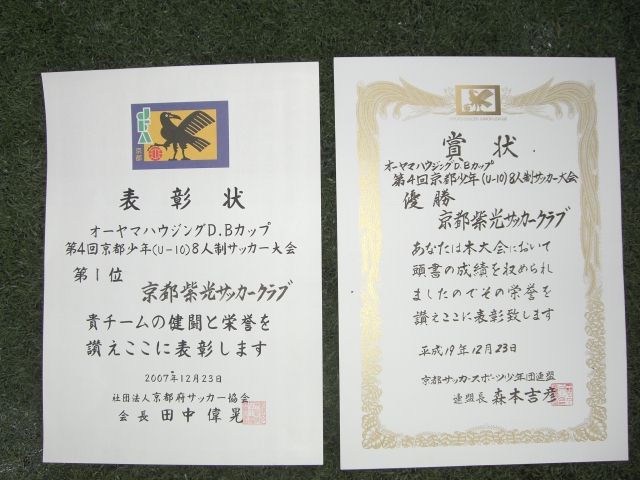 JFA
京都
表彰状
オーヤマハウジングD.Bカップ
第4回京都少年(U-10)8人制サッカー大会
第1位
京都紫光サッカークラブ
貴チームの健闘と栄誉を
讃えここに表彰します
2007年12月23日
社団法人京都府サッカー協会
会長 田中偉晃
賞状
オーヤマハウジングD.Bカップ
第4回京都少年(U-10)8人制サッカー大会
優勝
京都紫光サッカークラブ
あなたは本大会において
頭書の成績を収められ
ましたのでその栄誉を
讃えここに表彰致します
平成19年12月23日
京都サッカースポーツ少年団連盟
連盟長 森本吉彦